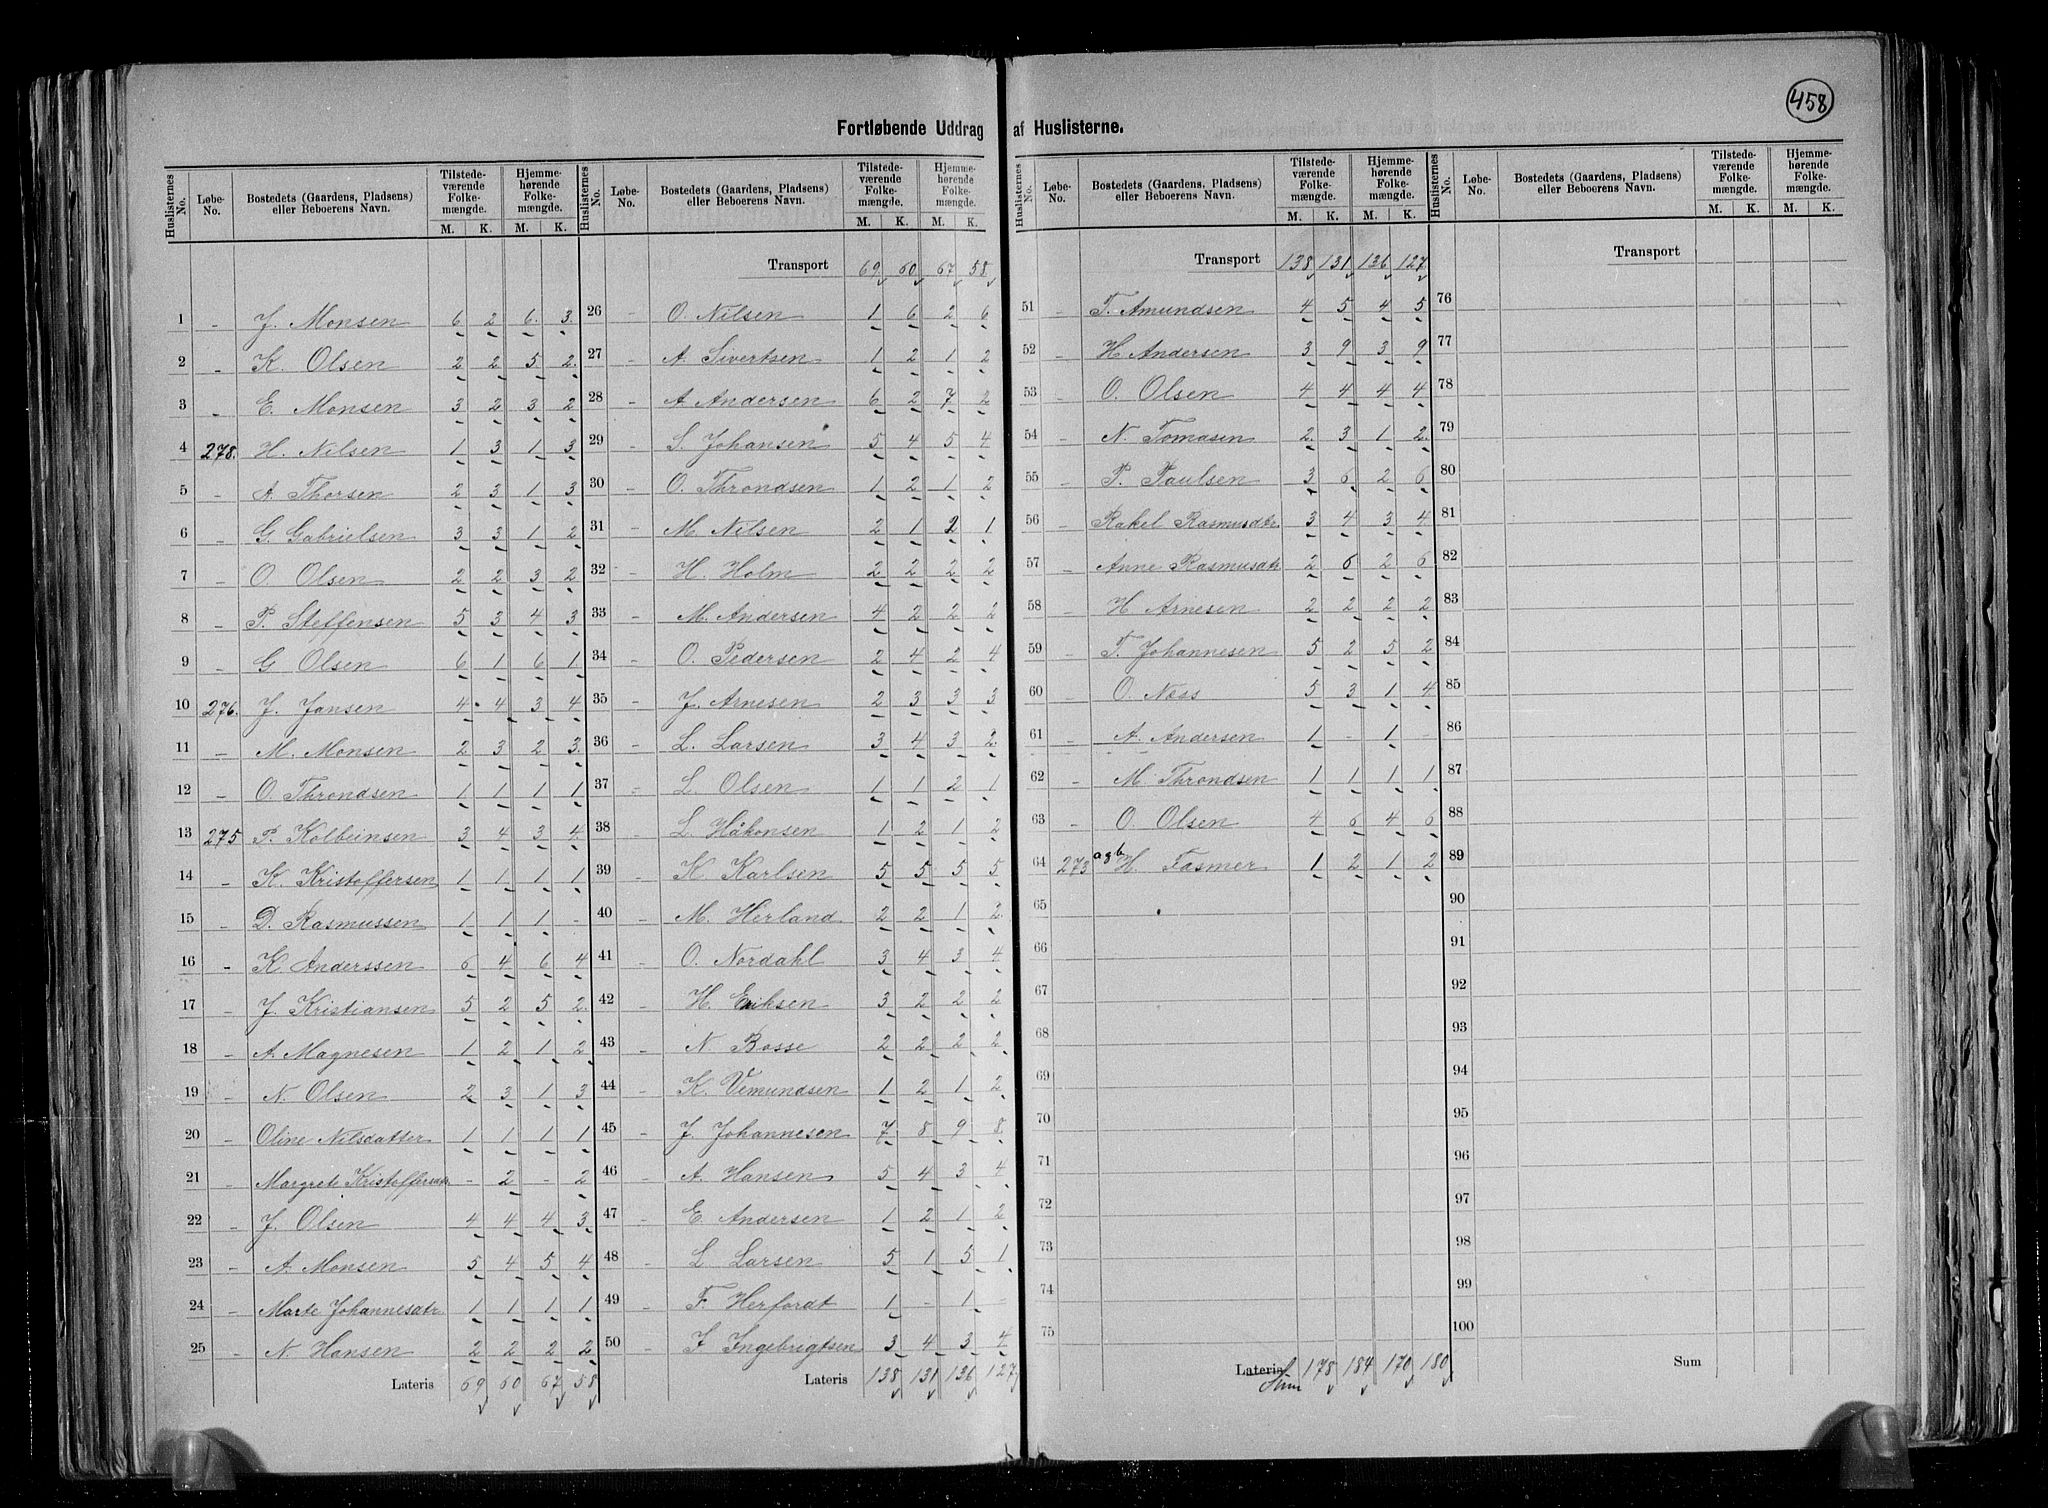 458
Fortløbende Uddrag af Huslisterne.
Huslisternes No. Løbe-No. Bostedets (Gaardens, Pladsens) eller Beboerens Navn. Tilstedeværende Folkemængde. M. K. Hjemmehørende Folkemængde. M. K.
1 - J. Monsen 6 2 6 3
2 - K. Olsen 2 2 5 2
3 - E. Monsen 3 2 3 2
4 278. H. Nilsen 1 3 1 3
5 - A. Thorsen 2 3 1 3
6 - G. Gabrielsen 3 3 1 2
7 - O. Olsen 2 2 3 2
8 - P. Steffensen 5 3 4 3
9 - G Olsen 6 1 6 1
10 276. J. Jansen 4 4 3 4
11 - M. Monsen 2 3 2 3
12 - O. Throndsen 1 1 1 1
13 275 P. Kolbeinsen 3 4 3 4
14 - K. Kristoffersen 1 1 1 1
15 - D. Rasmussen 1 1 1 -
16 - K Anderssen 6 4 6 4
17 - J. Kristiansen 5 2 5 2
18 - A. Magnesen 1 2 1 2
19 - N. Olsen 2 3 1 3
20 - Oline Nilsdatter 1 1 1 1
21 - Margrete Kristoffersdtr - 2 - 2
22 - J. Olsen 4 4 4 3
23 - A. Monsen 5 4 5 4
24 - Marte Johannesdtr 1 1 1 1
25 - N. Hansen 2 2 2 2
Lateris 69 60 67 58
Huslisternes No. Løbe-No. Bostedets (Gaardens, Pladsens) eller Beboerens Navn. Tilstedeværende Folkemængde. M. K. Hjemmehørende Folkemængde. M. K.
Transport 69 60 67 58
26 - O. Nilsen 1 6 2 6
27 - A Sivertsen 1 2 1 2
28 - A Andersen 6 2 7 2
29 - S. Johansen 5 4 5 4
30 - O. Throndsen 1 2 1 2
31 - M. Nilsen 2 1 2 1
32 - H. Holm 2 2 2 2
33 - M. Andersen 4 2 2 2
34 - O. Pedersen 2 4 2 4
35 - J. Arnesen 2 3 3 3
36 - L. Larsen 3 4 3 2
37 - L. Olsen 1 1 2 1
38 - L. Håkonsen 1 2 1 2
39 - K Karlsen 5 5 5 5
40 - M. Herland 2 2 1 2
41 - O. Nordahl 3 4 3 4
42 - H. Eriksen 3 2 2 2
43 - N. Bosse 2 2 2 2
44 - K. Vemundsen 1 2 1 2
45 - J Johannesen 7 8 9 8
46 - A. Hansen 5 4 3 4
47 - E. Andersen 1 2 1 2
48 - L Larsen 5 1 5 1
49 - F. Herfordt 1 - 1 -
50 - J Ingebrigtsen 3 4 3 4
Lateris 138 131 136 127
Huslisternes No. Løbe-No. Bostedets (Gaardens, Pladsens) eller Beboerens Navn. Tilstedeværende Folkemængde. M. K. Hjemmehørende Folkemængde. M. K.
Transport 138 131 136 127
51 - T. Amundsen 4 5 4 5
52 - H Andersen 3 9 3 9
53 - O. Olsen 4 4 4 4
54 - N. Tomasen 2 3 1 2
55 - P. Paulsen 3 6 2 6
56 - Rakel Rasmusdtr 3 4 3 4
57 - Anne Rasmusdtr 2 6 2 6
58 - H Arnesen 2 2 2 2
59 - T. Johannesen 5 2 5 2
60 - O. Ness 5 3 1 4
61 - A. Andersen 1 - 1 -
62 - M Throndsen 1 1 1 1
63 - O. Olsen 4 6 4 6
64 273 a&b H. Fasmer 1 2 1 2
65
66
67
68
69
70
71
72
73
74
75
Lateris Sum 178 184 170 180
Huslisternes No. Løbe-No. Bostedets (Gaardens, Pladsens) eller Beboerens Navn. Tilstedeværende Folkemængde. M. K. Hjemmehørende Folkemængde. M. K.
Transport
76
77
78
79
80
81
82
83
84
85
86
87
88
89
90
91
92
93
94
95
96
97
98
99
100
Sum